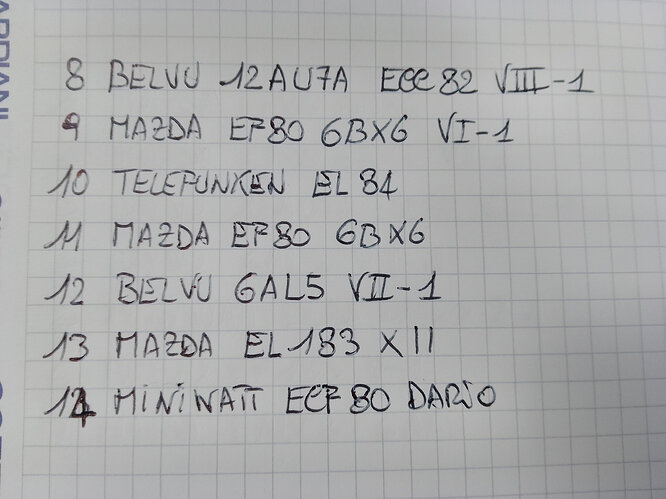 8 BELVU 12AU7A ECC 82 VIII-1
9 MAZDA EF80 6BX6 VI-1
10 TELEFUNKEN EL 84
11 MAZDA EF80 6BX6
12 BELVU 6AL5 VII-1
13 MAZDA EL 183 XII
14 MINIWATT ECF 80 DARIO